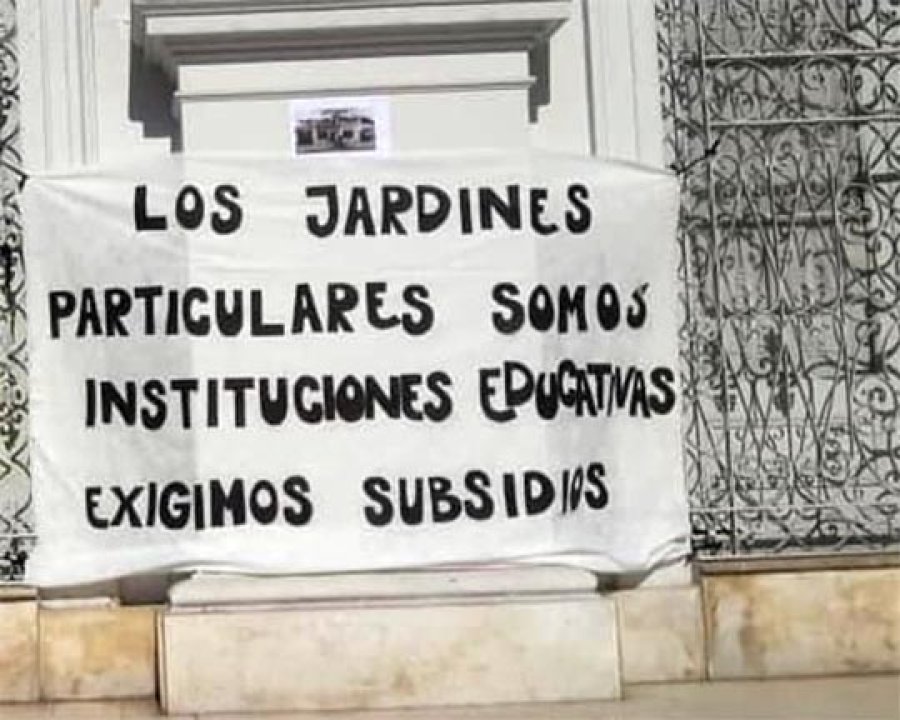 LOS JARDINES
PARTICULARES SOMOS
INSTITUCIONES EDUCATIVAS
EXIGIMOS SUBSIDIOS